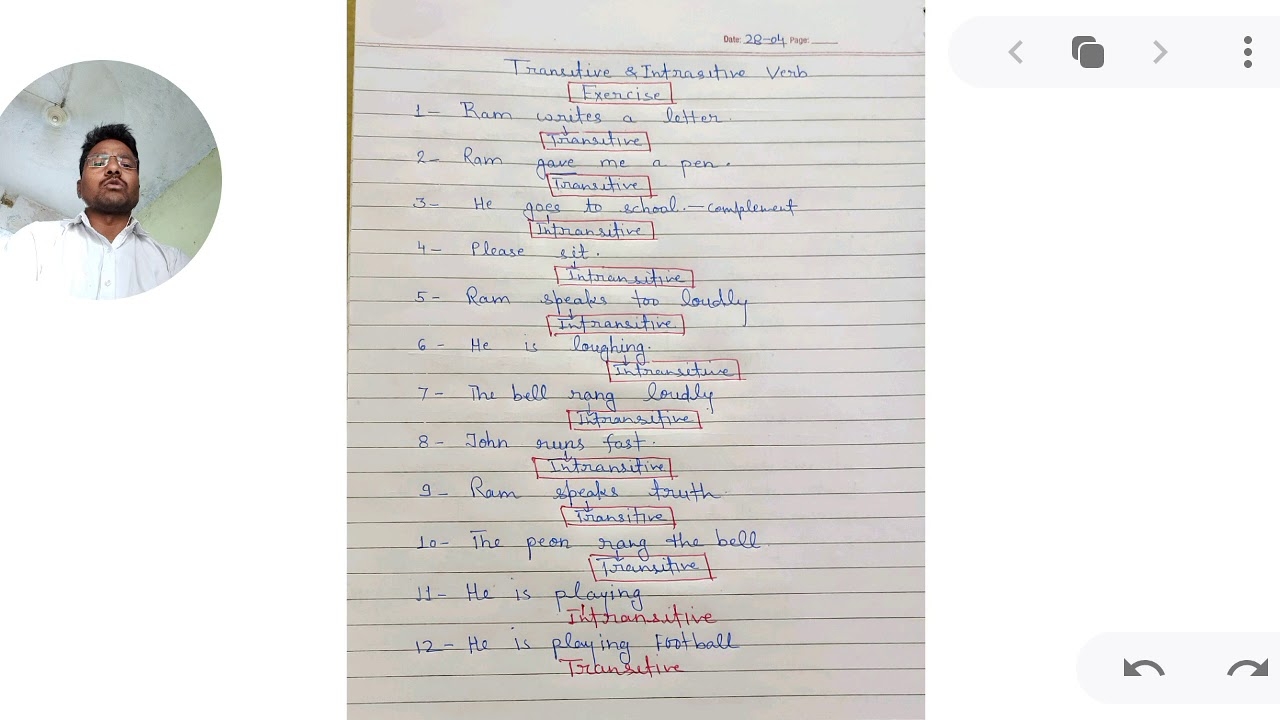 Date: 28-04 Page:
Transitive & Intrasitive Verb
Exercise
1- Ram writes a letter.
Transitive
2- Ram gave me a pen.
Transitive
3- He goes to school. - complement
Intransitive
4- Please sit.
Intransitive
5- Ram speaks too loudly
Intransitive
6- He is loughing.
Intransitive
7- The bell rang loudly
Intransitive
8- John runs fast.
Intransitive
9- Ram speaks truth.
Transitive
10- The peon rang the bell.
Transitive
11- He is playing
Intransitive
12- He is playing Football
Transitive